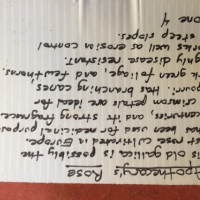 Apothecary's Rose
is old gallica is possibly the
est rose cultivated in Europe.
has been used for medicinal purpose
centuries, and its strong fragrance
crimson petals are ideal for
pourri. Has branching canes,
k green foliage, and few thorns.
ghly disease resistant.
works well as erosion control
steep slopes.
one 4